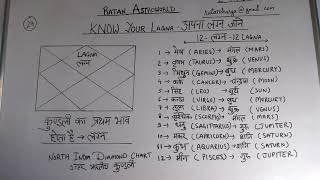 RATAN ASTROWORLD
KNOW YOUR LAGNA - अपना लग्न जाने
12- लग्न -12 LAGNA
LAGNA
लग्न
1 → मेष (ARIES) → मंगल (MARS)
2 → वृषभ (TAURUS) → शुक्र (VENUS)
3 → मिथुन (GEMINI) → बुध (MERCURY)
4 → कर्क (CANCER) → चंद्रमा (MOON)
5 → सिंह (LEO) → सूर्य (SUN)
6 → कन्या (VIRGO) → बुध (MERCURY)
7 → तुला (LIBRA) → शुक्र (VENUS)
8 → वृश्चिक (SCORPIO) → मंगल (MARS)
9 → धनु (SAGITTARIUS) → गुरु (JUPITER)
10 → मकर (CAPRICORN) → शनि (SATURN)
11 → कुंभ (AQUARIUS) → शनि (SATURN)
12 → मीन (PISCES) → गुरु (JUPITER)
कुण्डली का प्रथम भाव
होता है → लग्न
NORTH INDIA DIAMOND CHART
उत्तर भारतीय कुण्डली